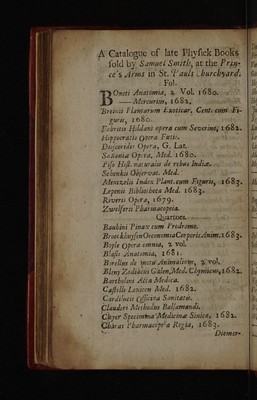 A Catalogue of late Physick Books
sold by Samuel Smith, at the Prin-
ce's Arms in St. Pauls Churchyard.
Fol.
BOneti Anatomia, 2 Vol. 1680.
— Mercurius, 1682.
Breinii Plantarum Exoticar. Cent. cum Fi-
guris, 1680.
Fabritii Hildani opera cum Severino, 1682.
Hippocratis Opera Fœsii.
Dioscorides Opera, G. Lat.
Sassonia Opera, Med. 1680.
Piso Hist. naturalis de rebus Indiæ.
Schenkii Observat. Med.
Mentzelii Index Plant. cum Figuris, 1683.
Lipenii Bibliotheca Med. 1683.
Riverii Opera, 1679.
Zwelferii Pharmacopeia.
Quartoes.
Bauhini Pinax cum Prodromo.
Broeckhuysen Oeconomia Corporis Anim. 1683.
Boyle Opera omnia, 2 vol.
Blasii Anatomia, 1681.
Borellus de motu Animalium, 2 vol.
Bleny Zodiacus Galen. Med. Chymicus, 1682.
Bartholini Acta Medica.
Castelli Lexicon Med. 1682.
Cardilucii Officina Sanitatis.
Claudini Methodus Balsamandi.
Cleyer Specimina Medicinæ Sinicæ, 1682.
Charas Pharmacopœa Regia, 1683.
Diemer-